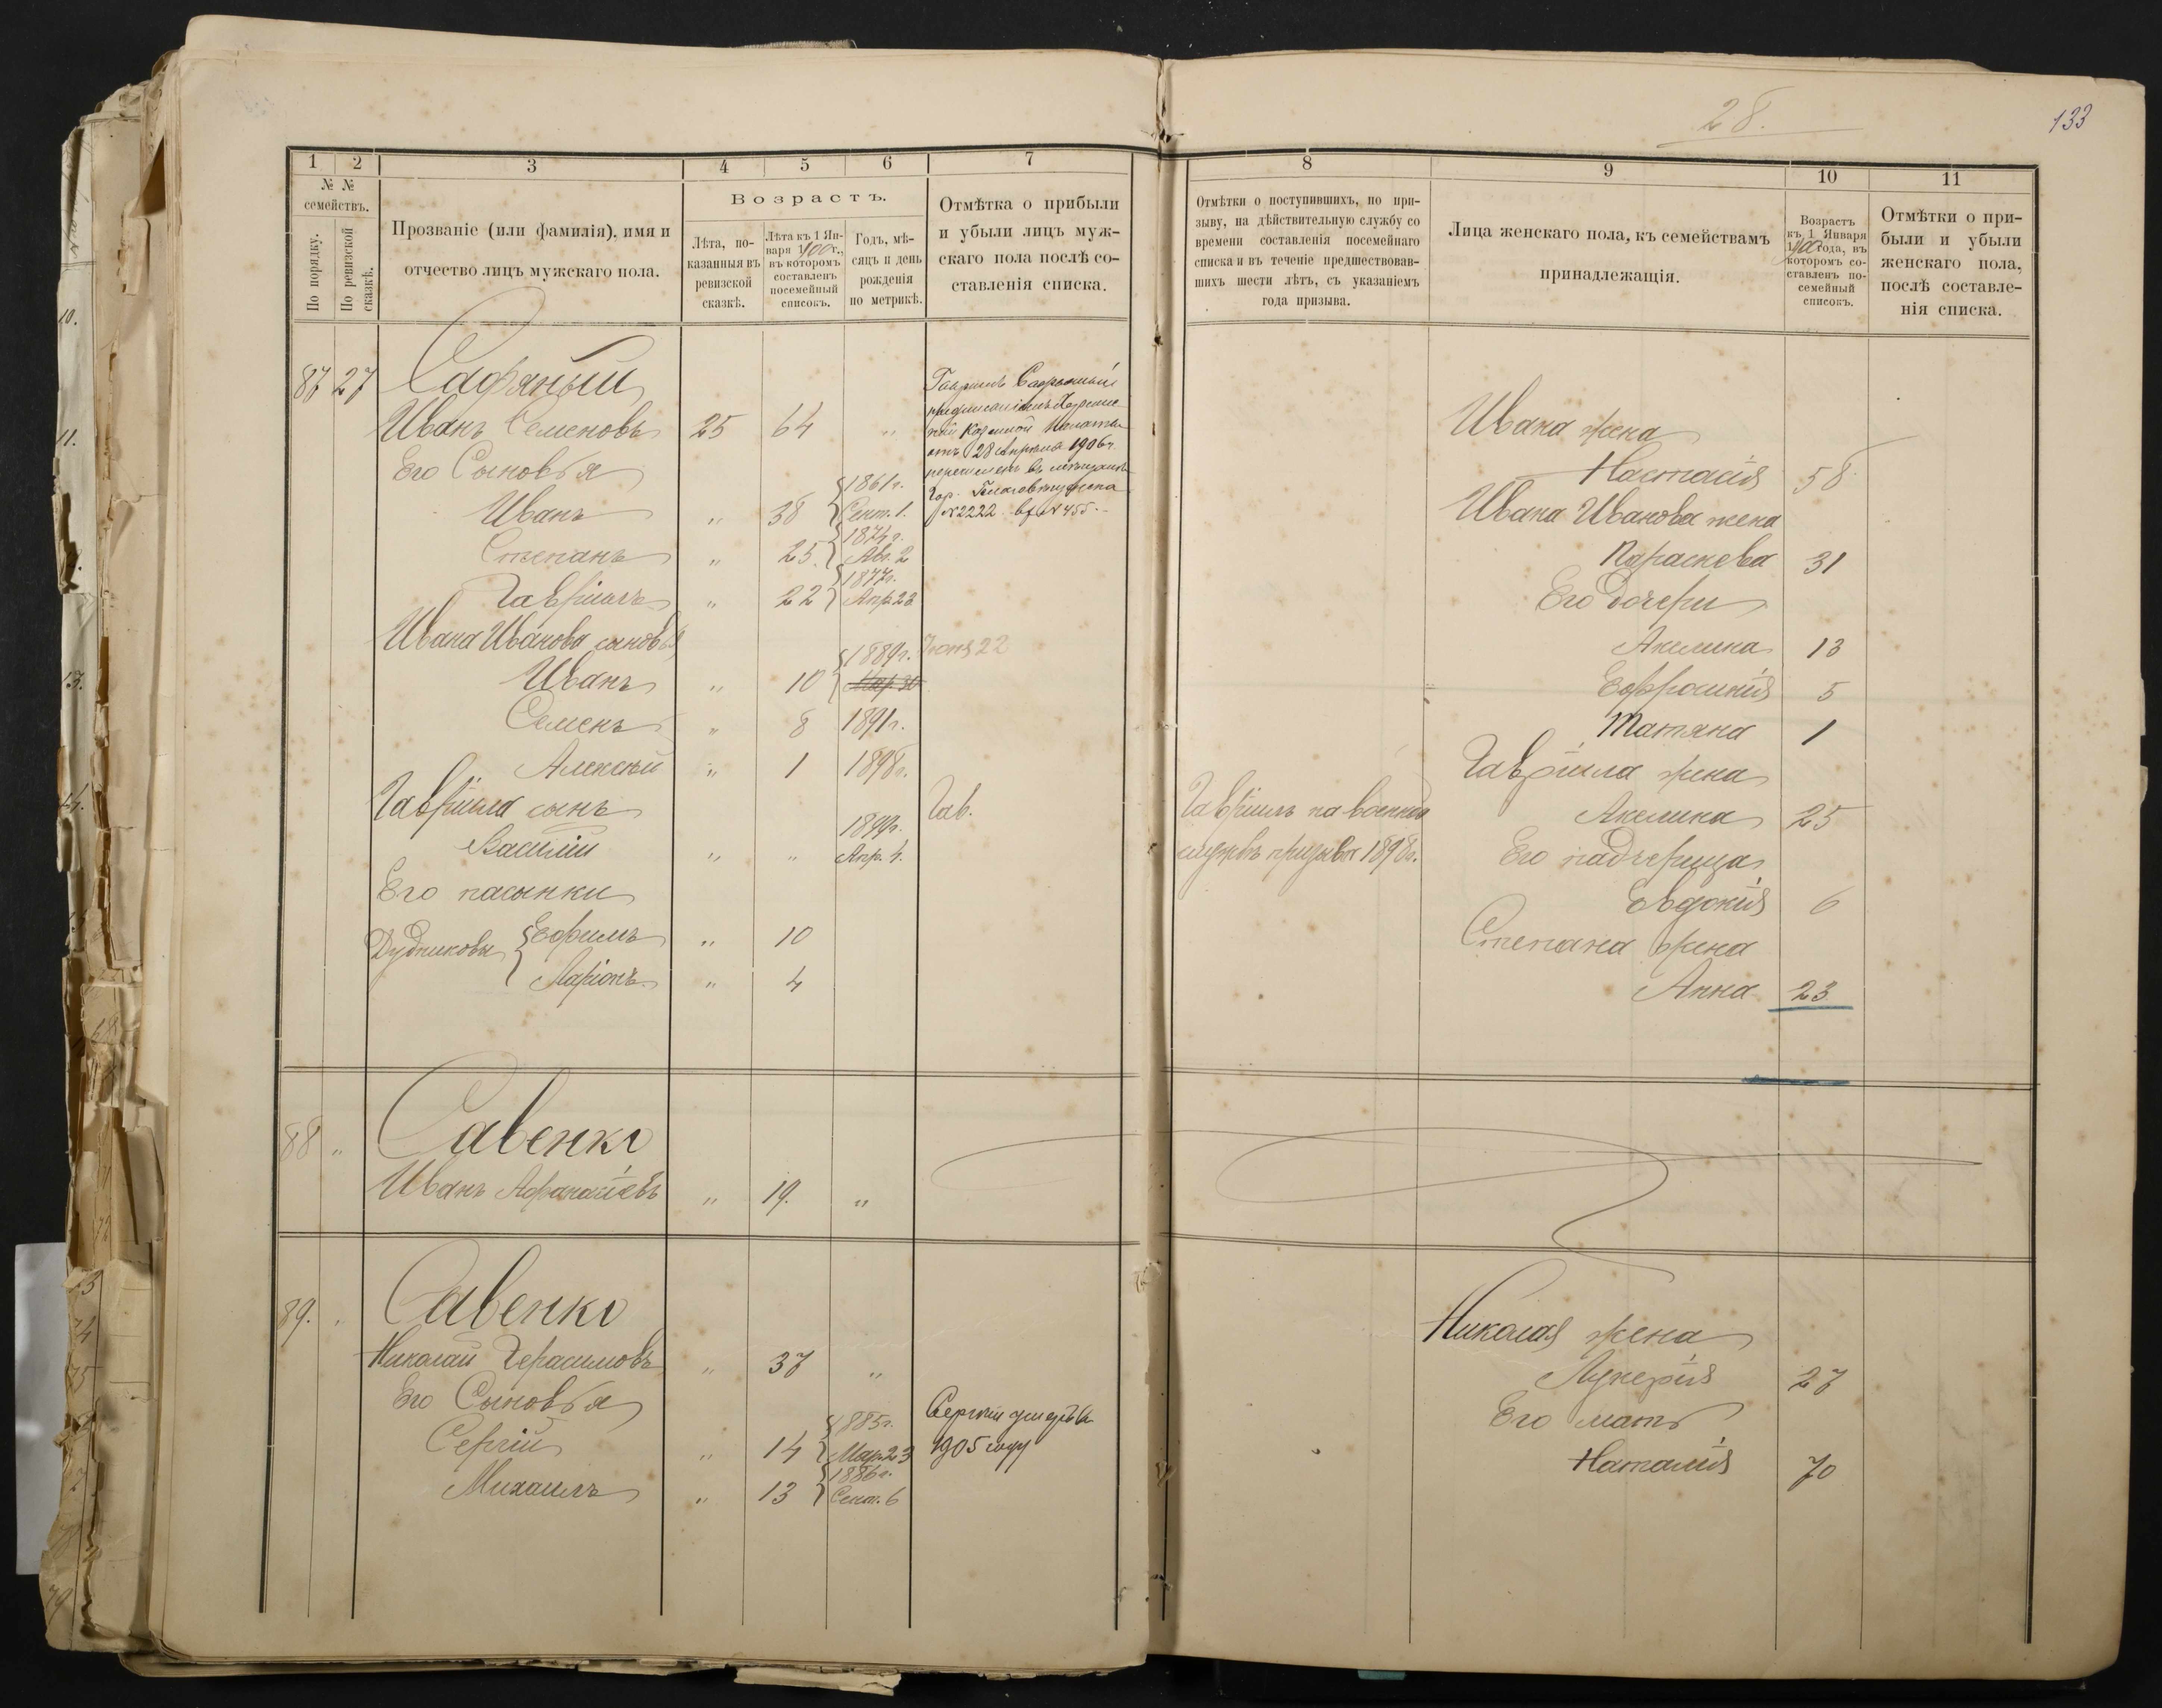 28.
133
1 2 3 4 5 6 7
№ №
семействъ.
По порядку.
По ревизской сказкѣ.
Прозваніе (или фамилія), имя и
отчество лицъ мужскаго пола.
Возрастъ.
Лѣта, по-
казанныя въ
ревизской
сказкѣ.
Лѣта къ 1 Ян-
варя 1900 г.,
въ которомъ
составленъ
посемейный
списокъ.
Годъ, мѣ-
сяцъ и день
рожденія
по метрикѣ.
Отмѣтка о прибыли
и убыли лицъ муж-
скаго пола послѣ со-
ставленія списка.
87 27 Сафяный
Иванъ Семеновъ 25 64 „
Его Сыновья
Иванъ „ 38 1861 г. Сент. 1.
Степанъ „ 25. 1874 г. Авг. 2
Гавріилъ „ 22 1877 г. Апр. 23
Ивана Иванова сыновья
Иванъ „ 10 1889 г. Мар. 30
Іюня 22
Семенъ „ 8 1891 г.
Алексѣй „ 1 1898 г.
Гавріила сынъ
Василій „ „ 1899 г. Апр. 4.
Гав.
Его пасынки
Дудниковы Ефимъ „ 10
Ларіонъ „ 4
Гавріилъ Сафяный
предписаніемъ Херсон-
ской Казенной Палаты
отъ 28 Апрѣля 1906 г.
перечисленъ въ мѣщане
гор.
№ 2222 вх. № 455.
88 „ Савенко
Иванъ Афанасіевъ „ 19. „
89. Савенко
Николай Герасимовъ „ 37 „
Его Сыновья
Сергій „ 14 1885 г. Мар. 23
Михаилъ „ 13 1886 г. Сент. 6
Сергѣй умеръ въ
1905 году
8 9 10 11
Отмѣтки о поступившихъ, по при-
зыву, на дѣйствительную службу со
времени составленія посемейнаго
списка и въ теченіе предшествовав-
шихъ шести лѣтъ, съ указаніемъ
года призыва.
Лица женскаго пола, къ семействамъ
принадлежащія.
Возрастъ
къ 1 Января
1900 года, въ
которомъ со-
ставленъ по-
семейный
списокъ.
Отмѣтки о при-
были и убыли
женскаго пола,
послѣ составле-
нія списка.
Ивана жена
Настасія 58.
Ивана Иванова жена
Параскева 31
Его дочери
Акелина 13
Ефросинія 5
Татяна 1
Гавріила жена
Гавріилъ на военной
службѣ призыва 1898 г.
Акелина 25
Его падчерица
Евдокія 6
Степана жена
Анна 23
Николая жена
Лукерія 27
Его мать
Наталія 70